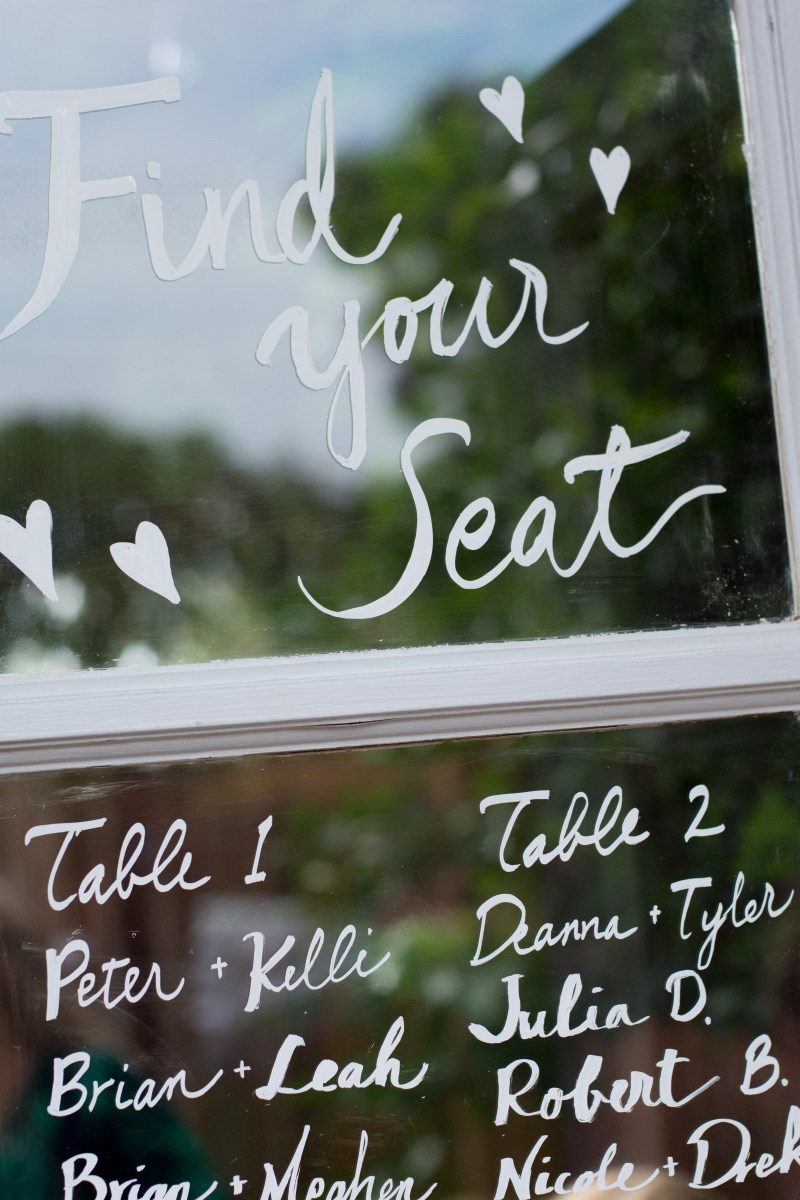 Find
your
Seat
Table 1
Peter + Kelli
Brian + Leah
Brian + Meghen
Table 2
Deanna + Tyler
Julia D.
Robert B.
Nicole + Drek